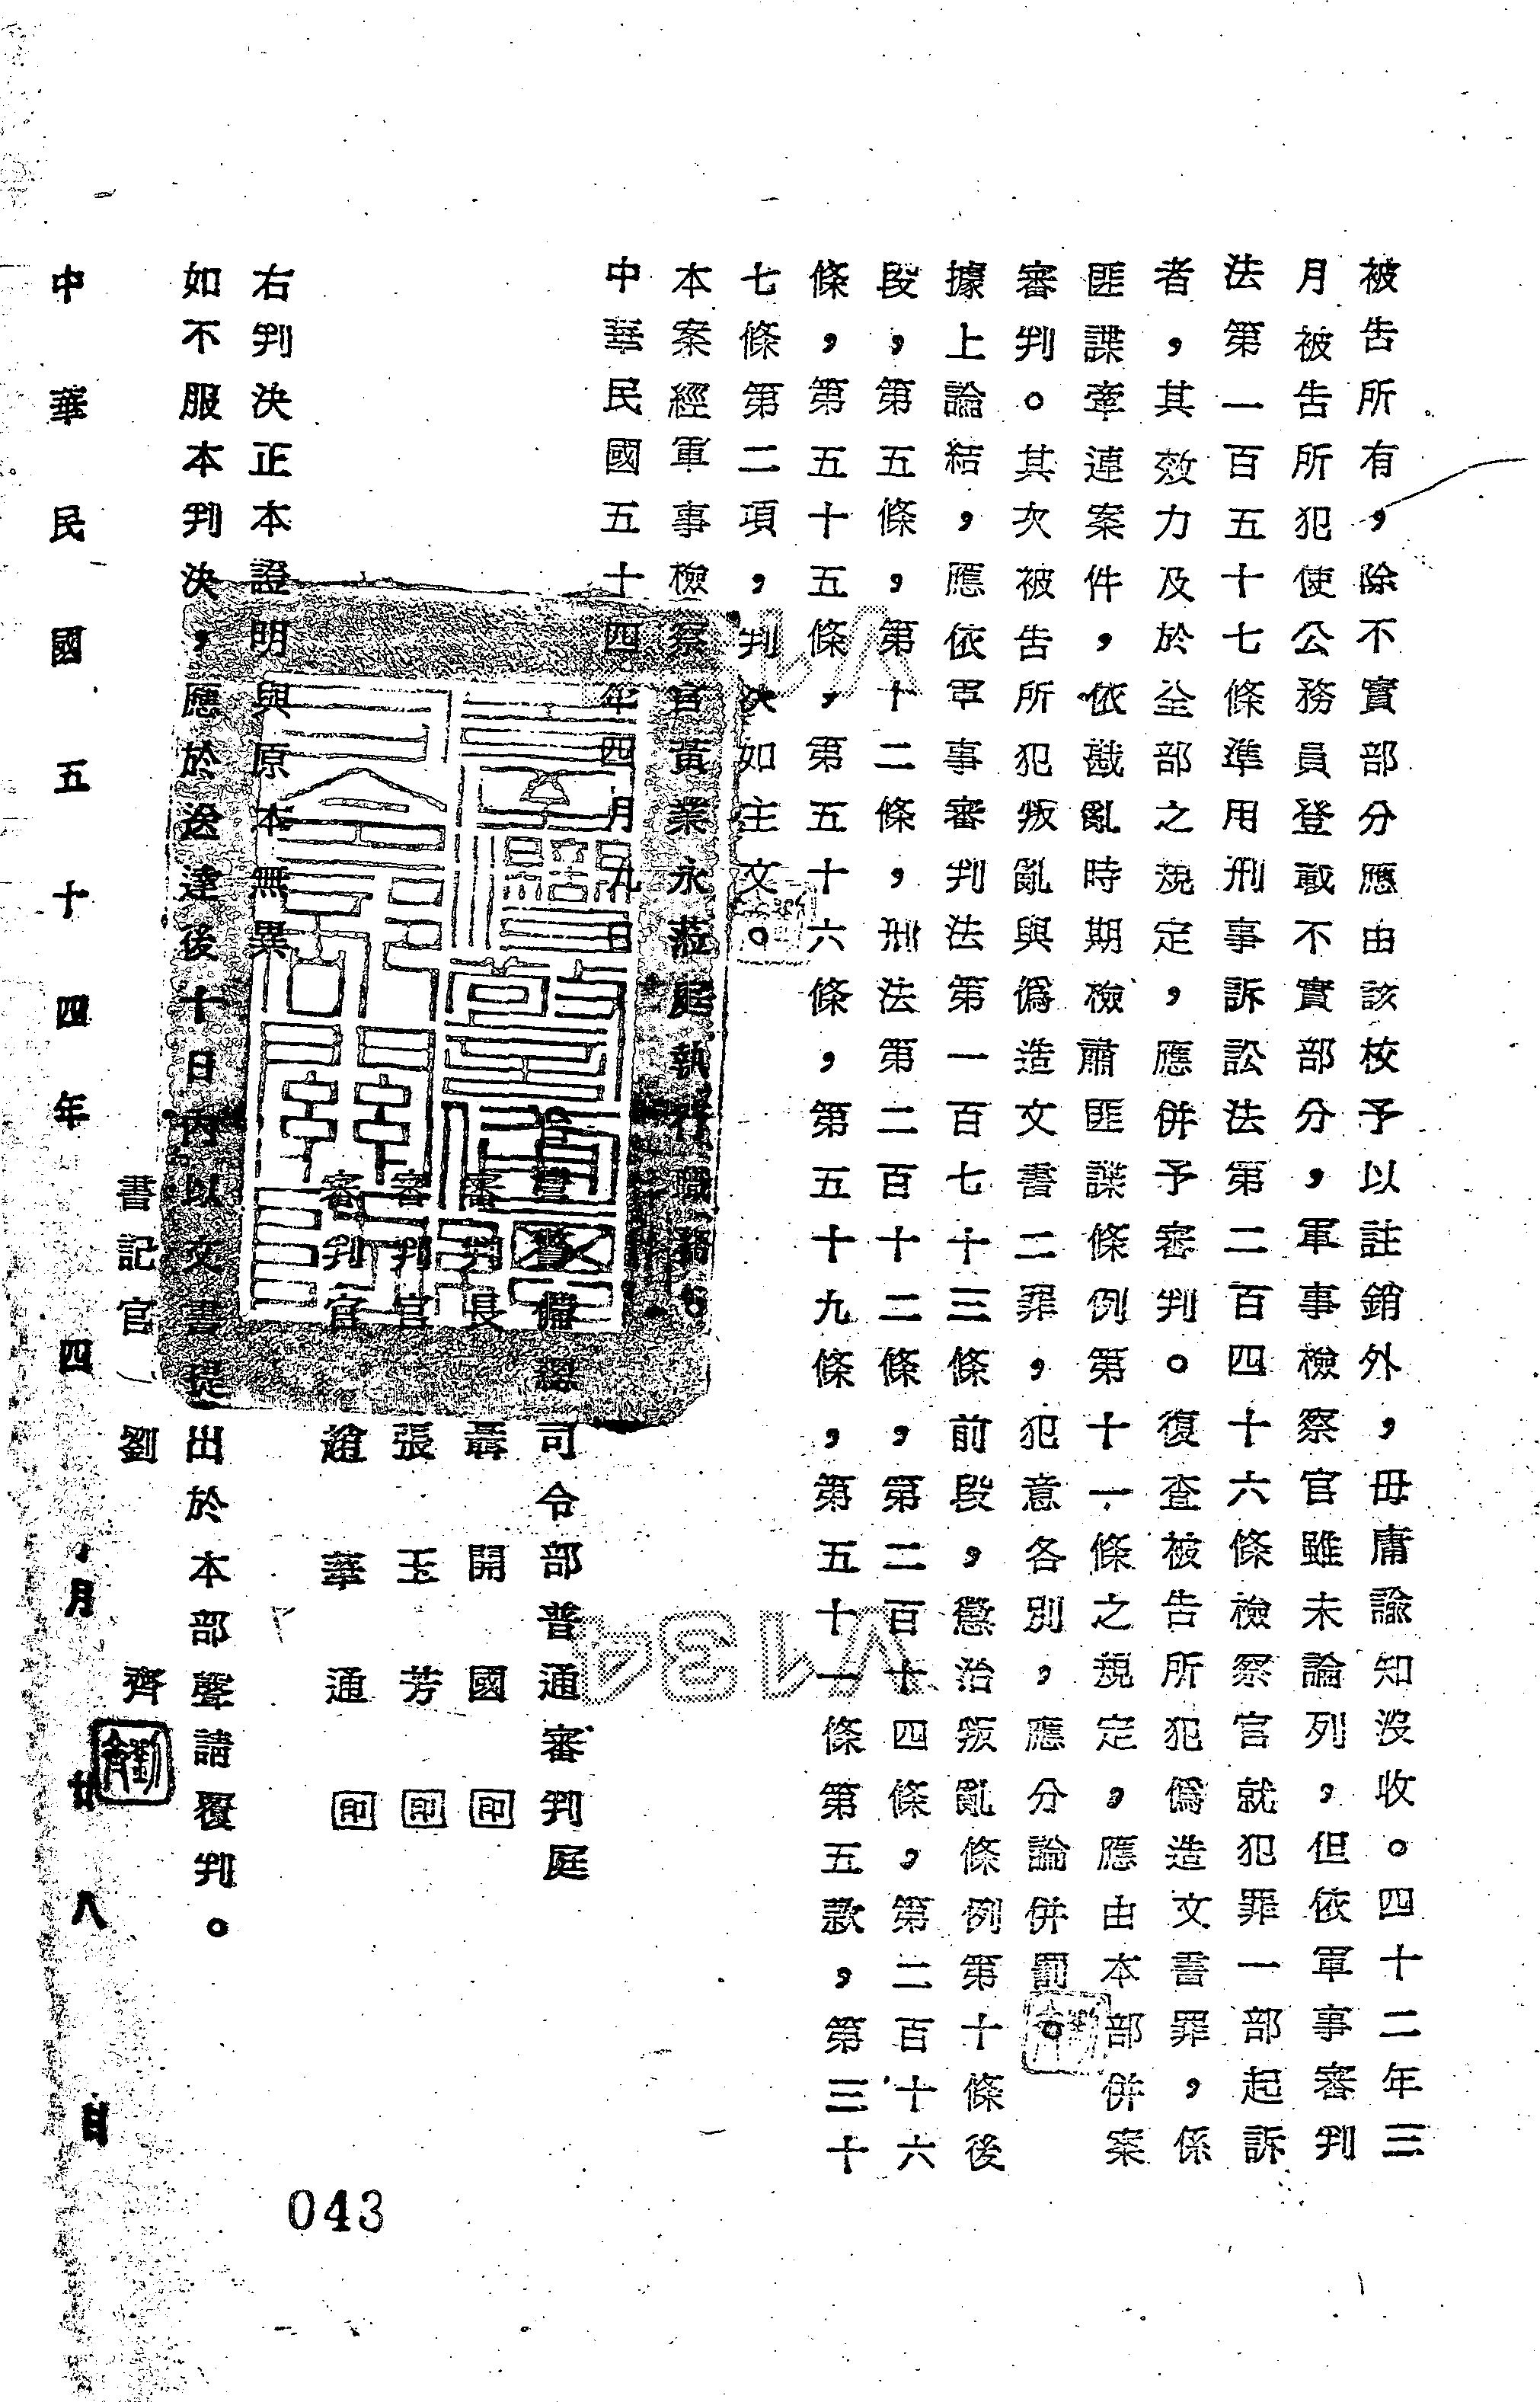 被告所有，除不實部分應由該校予以註銷外，毋庸諭知沒收。四十二年三
月被告所犯使公務員登載不實部分，軍事檢察官雖未論列，但依軍事審判
法第一百五十七條準用刑事訴訟法第二百四十六條檢察官就犯罪一部起訴
者，其效力及於全部之規定，應併予審判。復查被告所犯偽造文書罪，係
匪諜牽連案件，依戡亂時期檢肅匪諜條例第十一條之規定，應由本部併案
審判。其次被告所犯叛亂與偽造文書二罪，犯意各別，應分論併罰。
據上論結，應依軍事審判法第一百七十三條前段，懲治叛亂條例第十條後
段，第五條，第十二條，刑法第二百十二條，第二百十四條，第二百十六
條，第五十五條，第五十六條，第五十九條，第五十一條第五款，第三十
七條第二項，判決如主文。
本案經軍事檢察官黃業永蒞庭執行職務。
中華民國五十四年四月九日
警備總司令部普通審判庭
審判長 聶開國 印
審判官 張玉芳 印
審判官 趙華通 印
右判決正本證明與原本無異
如不服本判決，應於送達後十日內以文書提出於本部聲請覆判。
書記官 劉齊
中華民國五十四年四月廿八日
043
V134